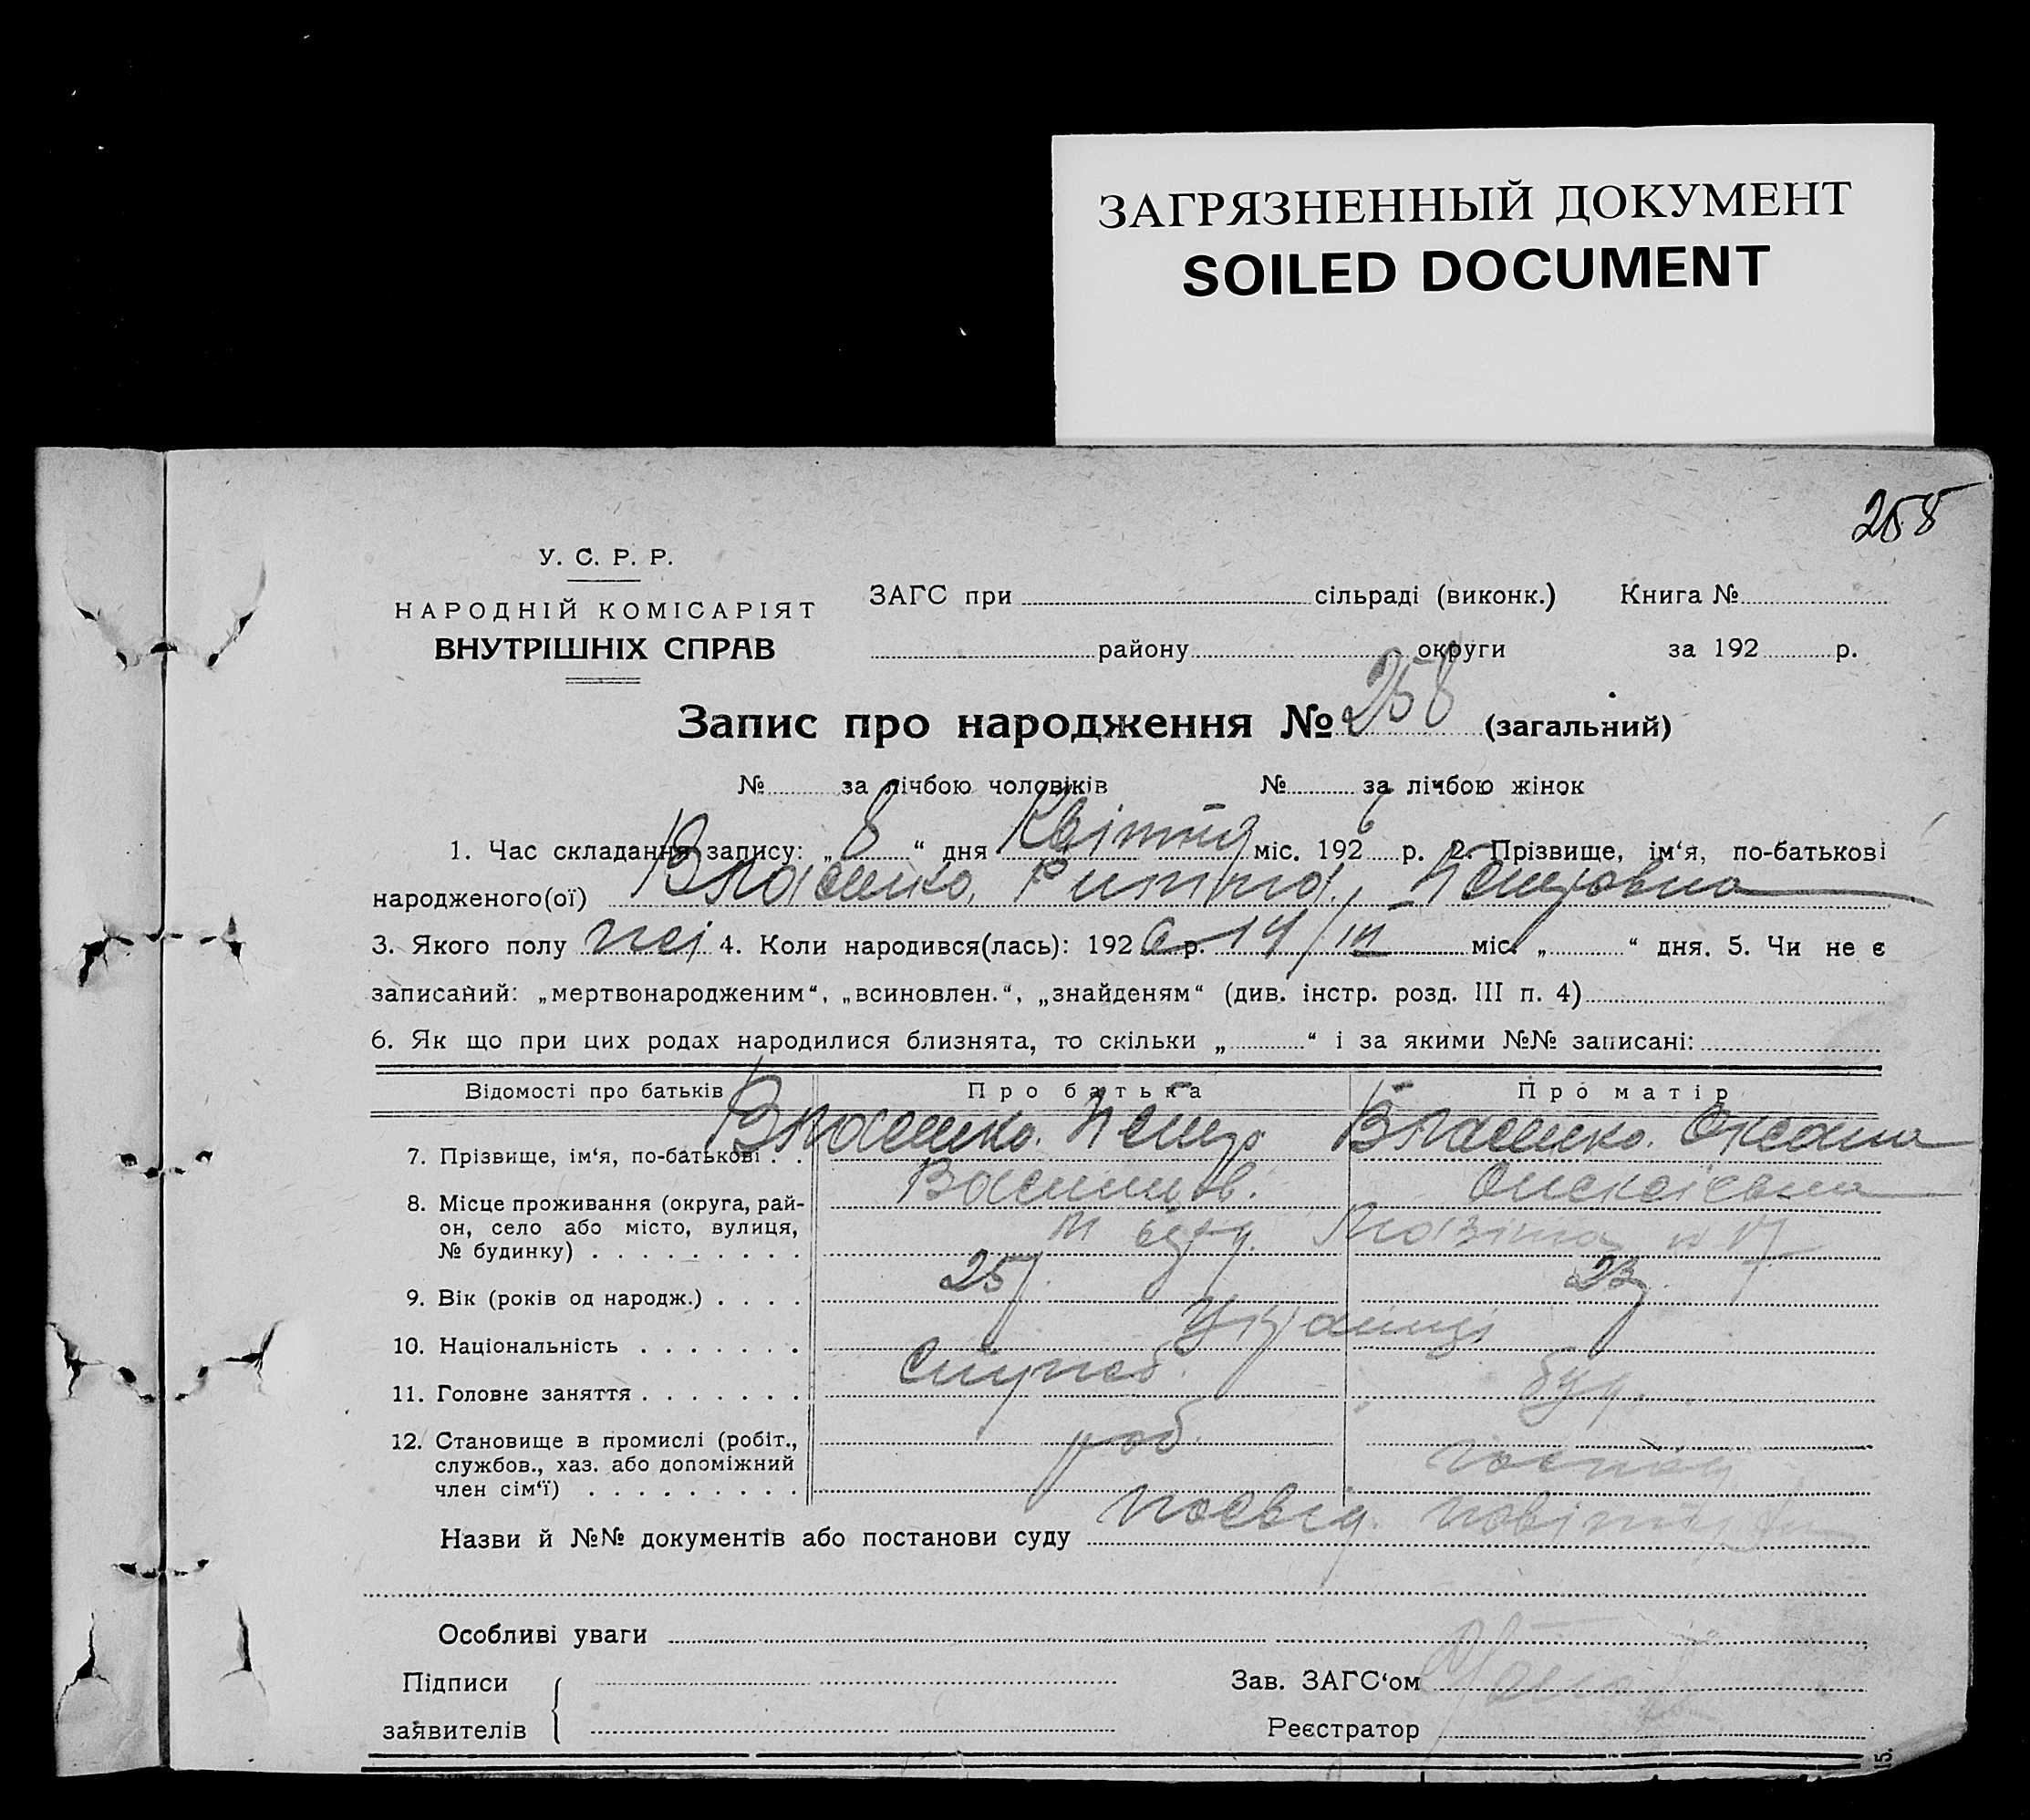 ЗАГРЯЗНЕННЫЙ ДОКУМЕНТ
SOILED DOCUMENT
258
У. С. Р. Р.
НАРОДНІЙ КОМІСАРІЯТ
ВНУТРІШНІХ СПРАВ
ЗАГС при сільраді (виконк.) Книга №
району округи за 192 р.
Запис про народження № 258 (загальний)
№ за лічбою чоловіків № за лічбою жінок
1. Час складання запису: „8“ дня Квітня міс. 1926 р. 2. Прізвище, ім‘я, по-батькові
народженого(ої) Власенко, Петровна
3. Якого полу 4. Коли народився(лась): 1926 р. 14/III міс. „ “ дня. 5. Чи не є
записаний: „мертвонародженим“, „всиновлен.“, „знайденям“ (див. інстр. розд. III п. 4)
6. Як що при цих родах народилися близнята, то скільки „ “ і за якими №№ записані:
Відомості про батьків Про батька Про матір
7. Прізвище, ім‘я, по-батькові . . Власенко. Петро Власенко. Оксана
Олексієвна
8. Місце проживання (округа, рай-
он, село або місто, вулиця,
№ будинку) . . . . . . . . .
9. Вік (років од народж.) . . . . 25 23
10. Національність . . . . . . . Українці
11. Головне заняття . . . . . . . Служб.
12. Становище в промислі (робіт., роб.
службов., хаз. або допоміжний
член сім‘ї) . . . . . . . . .
Назви й №№ документів або постанови суду посвід.
Особливі уваги
Підписи Зав. ЗАГС‘ом
заявителів Реєстратор
15.